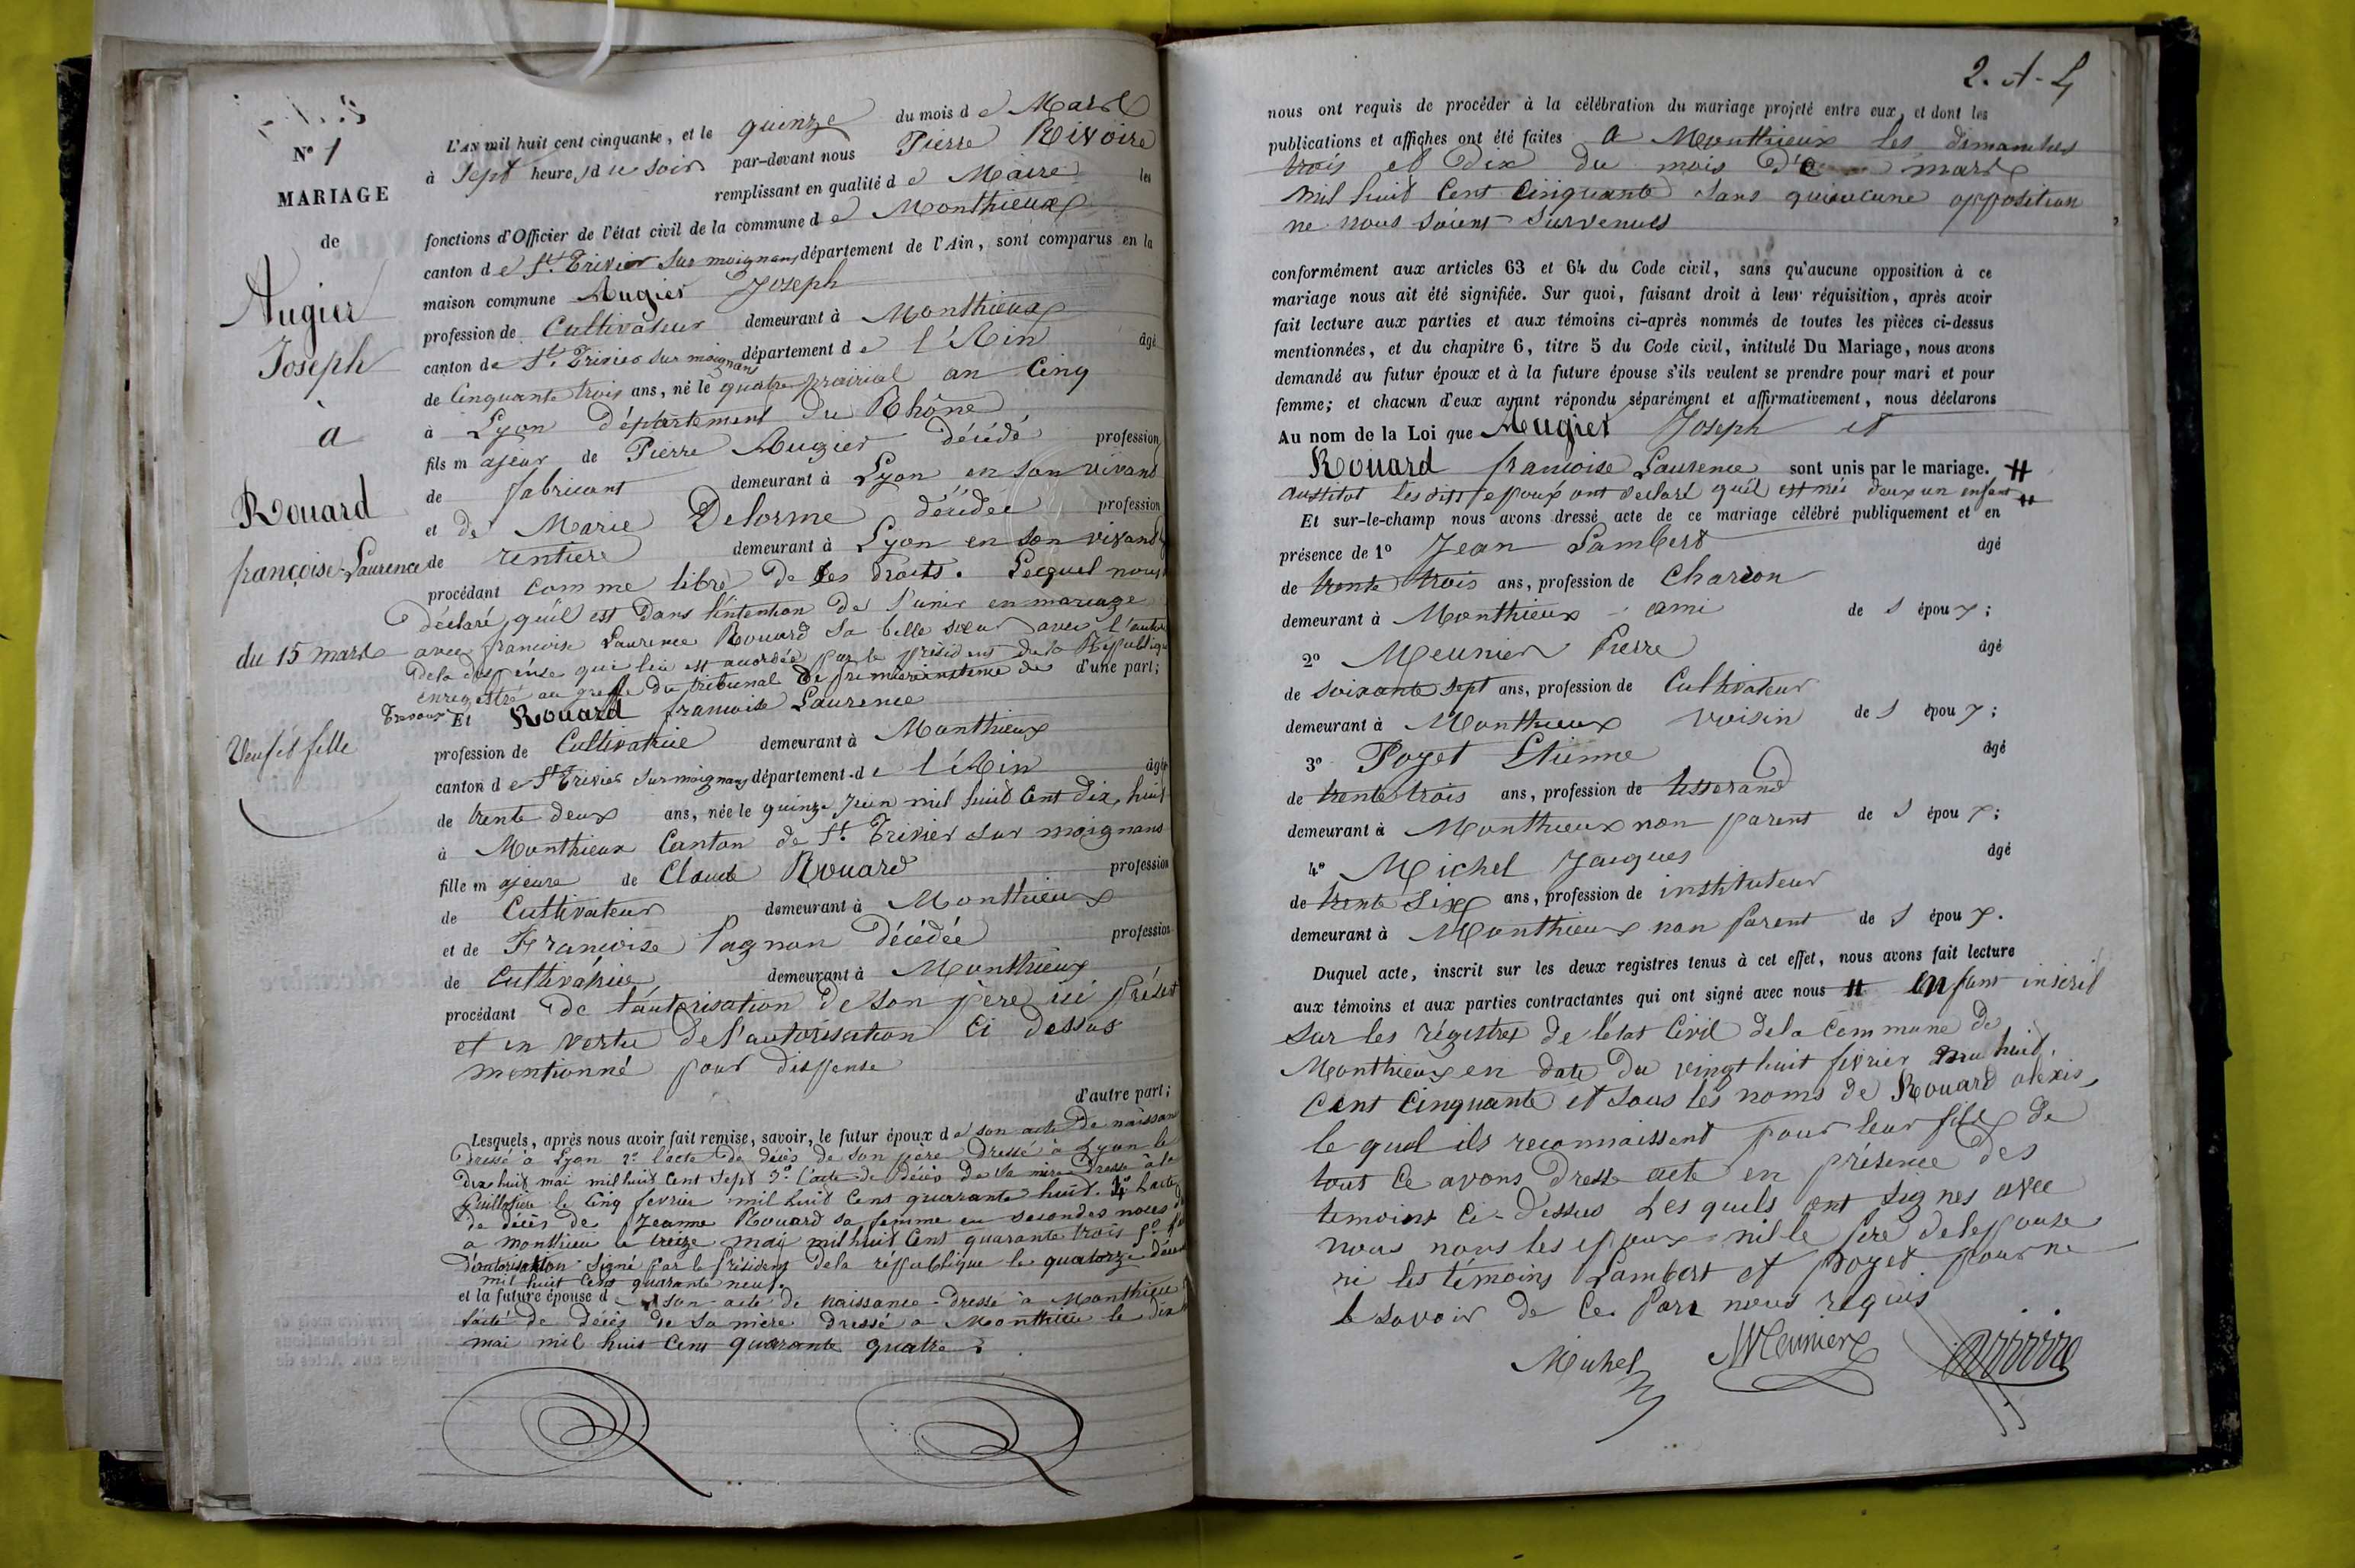 N° 1
MARIAGE
de
Augier
Joseph
à
Rouard
françoise Laurence
du 15 mars
Veuf et fille
L'AN mil huit cent cinquante, et le quinze du mois de Mars
à Sept heures du soir par-devant nous Pierre Rivoire
remplissant en qualité de Maire les
fonctions d'Officier de l'état civil de la commune de Monthieux
canton de St. Trivier sur moignans département de l'Ain, sont comparus en la
maison commune Augier Joseph
profession de Cultivateur demeurant à Monthieux
canton de St. Trivier sur moignans département de l'Ain âgé
de Cinquante trois ans, né le quatre prairial an Cinq
à Lyon département du Rhône
fils majeur de Pierre Augier décédé profession
de fabricant demeurant à Lyon en son vivand
et de Marie Delorme décédée profession
de rentiere demeurant à Lyon en son vivand
procédant comme libre de ses droits. Lequel nous
déclaré qu'il est dans l'intention de s'unir en mariage
avec francoise Laurence Rouard sa belle soeur avec l'auto
de la dispense qui lui est accordée par le président de la Républiq
enregistré au greffe du tribunal de premiere instance de d'une part;
Trevoux Et Rouard francoise Laurence
profession de Cultivatrice demeurant à Monthieux
canton de St Trivier sur moignans département de l'Ain âgée
de trente deux ans, née le quinze juin mil huit Cent dix huit
à Monthieux Canton de St. Trivier sur moignans
fille majeure de Claude Rouard profession
de Cultivateur demeurant à Monthieux
et de Francoise Pagnon Décédée profession
de Cultivatrice demeurant à Monthieux
procédant de l'autorisation de son père ici présent
et en vertu de l'autorisation Ci dessus
mentionné pour dispense
d'autre part;
Lesquels, après nous avoir fait remise, savoir, le futur époux de son acte de naissan
dressé à Lyon 2° l'acte de décès de son père dressé à Lyon le
dix huit mai mil huit Cent Sept 3° l'acte de décès de sa mère dressé à la
Guillotiere le Cinq fevrier mil huit Cent quarante huit. 4° L'acte
de décès de Jeanne Rouard sa femme en secondes noces
a monthieu le treize mai mil huit Cent quarante trois 5°
d'autorisation signé par le président dela république le quatorze
mil huit Cent quarante neuf.
et la future épouse de son acte de naissance dressé à Monthieu
l'acte de décès de sa mère dressé a Monthieu le dix
mai mil huit Cent quarante quatre
2. A - 4
nous ont requis de procéder à la célébration du mariage projeté entre eux, et dont les
publications et affiches ont été faites A Monthieux les dimanches
trois et dix du mois de mars
mil huit Cent Cinquante sans qu'aucune opposition
ne nous soient survenues
conformément aux articles 63 et 64 du Code civil, sans qu'aucune opposition à ce
mariage nous ait été signifiée. Sur quoi, faisant droit à leur réquisition, après avoir
fait lecture aux parties et aux témoins ci-après nommés de toutes les pièces ci-dessus
mentionnées, et du chapitre 6, titre 5 du Code civil, intitulé Du Mariage, nous avons
demandé au futur époux et à la future épouse s'ils veulent se prendre pour mari et pour
femme; et chacun d'eux ayant répondu séparément et affirmativement, nous déclarons
Au nom de la Loi que Augier Joseph et
Rouard francoise Laurence sont unis par le mariage. #
Aussitot les dits epoux ont declaré qu'il est né d'eux un enfant #
Et sur-le-champ nous avons dressé acte de ce mariage célébré publiquement et en
présence de 1° Jean Lambert âgé
de trente trois ans, profession de Charron
demeurant à Monthieux ami de s époux;
2° Meunier Pierre âgé
de soixante sept ans, profession de Cultivateur
demeurant à Monthieux voisin de s époux;
3° Poyet Etienne âgé
de trente trois ans, profession de tisserand
demeurant à Monthieux non parent de s époux;
4° Michel Jacques âgé
de trente six ans, profession de instituteur
demeurant à Monthieux non parent de s époux.
Duquel acte, inscrit sur les deux registres tenus à cet effet, nous avons fait lecture
aux témoins et aux parties contractantes qui ont signé avec nous # Enfant inscrit
sur les régistres de l'état Civil de la Commune de
Monthieux en date du vingt huit fevrier mil huit
Cent Cinquante et sous les noms de Rouard alexis,
le quel ils reconnaissent pour leur fils de
tout ce avons dressé acte en présence des
temoins Ci-Dessus Lesquels ont signés avec
nous nons les epoux ni le père de lepouse
ni les témoins Lambert et poyet pour ne
le savoir de Ce Par nous requis
Michel Meunier Rivoire